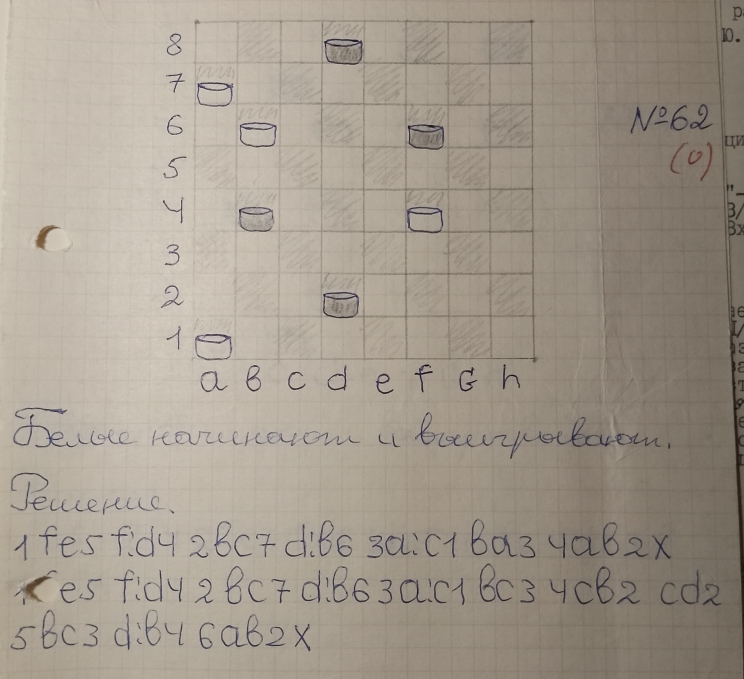 8
7
6
5
4
3
2
1
a b c d e f G h
№62
(0)
Белые начинают и выигрывают.
Решение.
1 fe5 f:d4 2 bc7 d:b6 3 a:c1 ba3 4 ab2X
fe5 f:d4 2 bc7 d:b6 3 a:c1 bc3 4 cb2 cd2
5 bc3 d:b4 6 ab2X
р
ю.
ци
3/
вх